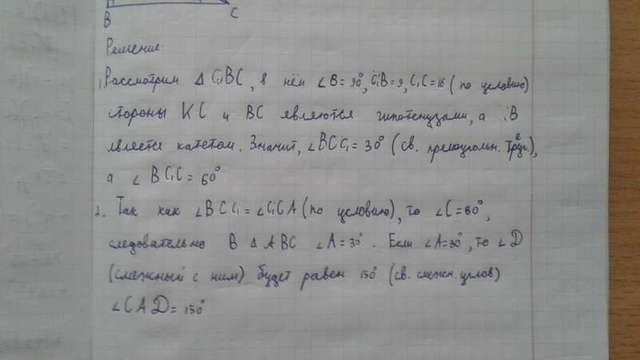 B C
Решение:
1. Рассмотрим △ C₁BC, в нём ∠B=90°, C₁B=9, C₁C=18 (по условию)
стороны KC и BC являются гипотенузами, а C₁B
является катетом. Значит, ∠BCC₁=30° (св. прямоугольн. треуг.),
а ∠BC₁C=60°
2. Так как ∠BCC₁=∠C₁CA (по условию), то ∠C=60°,
следовательно В △ ABC ∠A=30°. Если ∠A=30°, то ∠D
(смежный с ним) будет равен 150° (св. смежн. углов)
∠CAD=150°